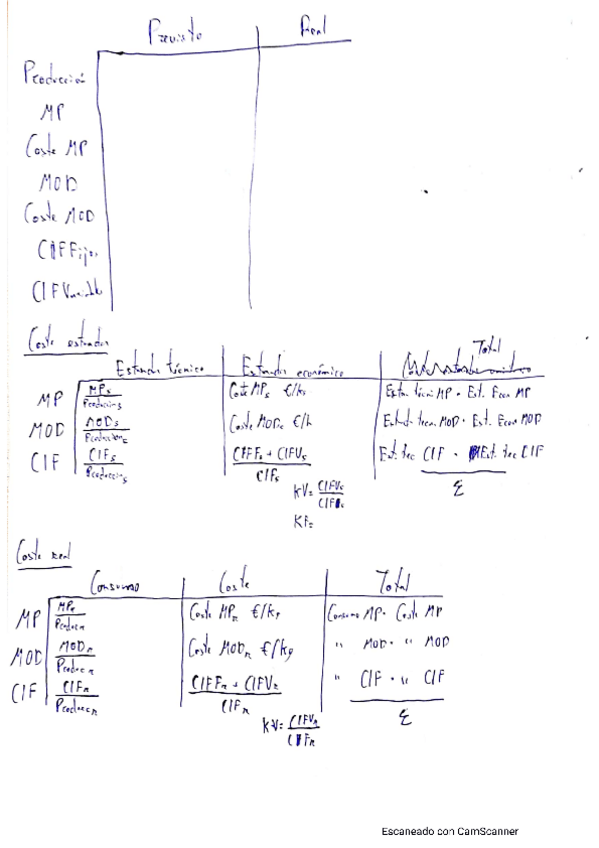 Previsto Real
Producción
MP
Coste MP
MOD
Coste MOD
CIF Fijos
CIF Variable
Coste estandar
Total
Estandar técnico Estandar económico
MP MPs / Produccións Coste MPs €/kg Estan. técni MP · Est. Econ MP
MOD MODs / Produccións Coste MODs €/h Estand. tecn. MOD · Est. Econ MOD
CIF CIFs / Produccións CIFFs + CIFVs / CIFs Est. tec CIF · Est. tec CIF
KV= CIFVs / CIFs Σ
KF=
Coste real
Consumo Coste Total
MP MPR / ProduccR Coste MPR €/kg Consumo MP · Coste MP
MOD MODR / ProduccR Coste MODR €/kg " MOD · " MOD
CIF CIFR / ProduccR CIFFR + CIFVR / CIFR " CIF · " CIF
KV= CIFVR / CIFR Σ
Escaneado con CamScanner